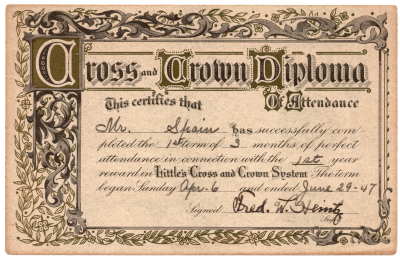 Cross and Crown Diploma
This certifies that Of Attendance
Mr. Spain has successfully com
pleted the 1st term of 3 months of perfect
attendance in connection with the 1st year
reward in Little's Cross and Crown System. The term
began Sunday Apr. 6 and ended June 29-47
Signed Fred. W. Heintz